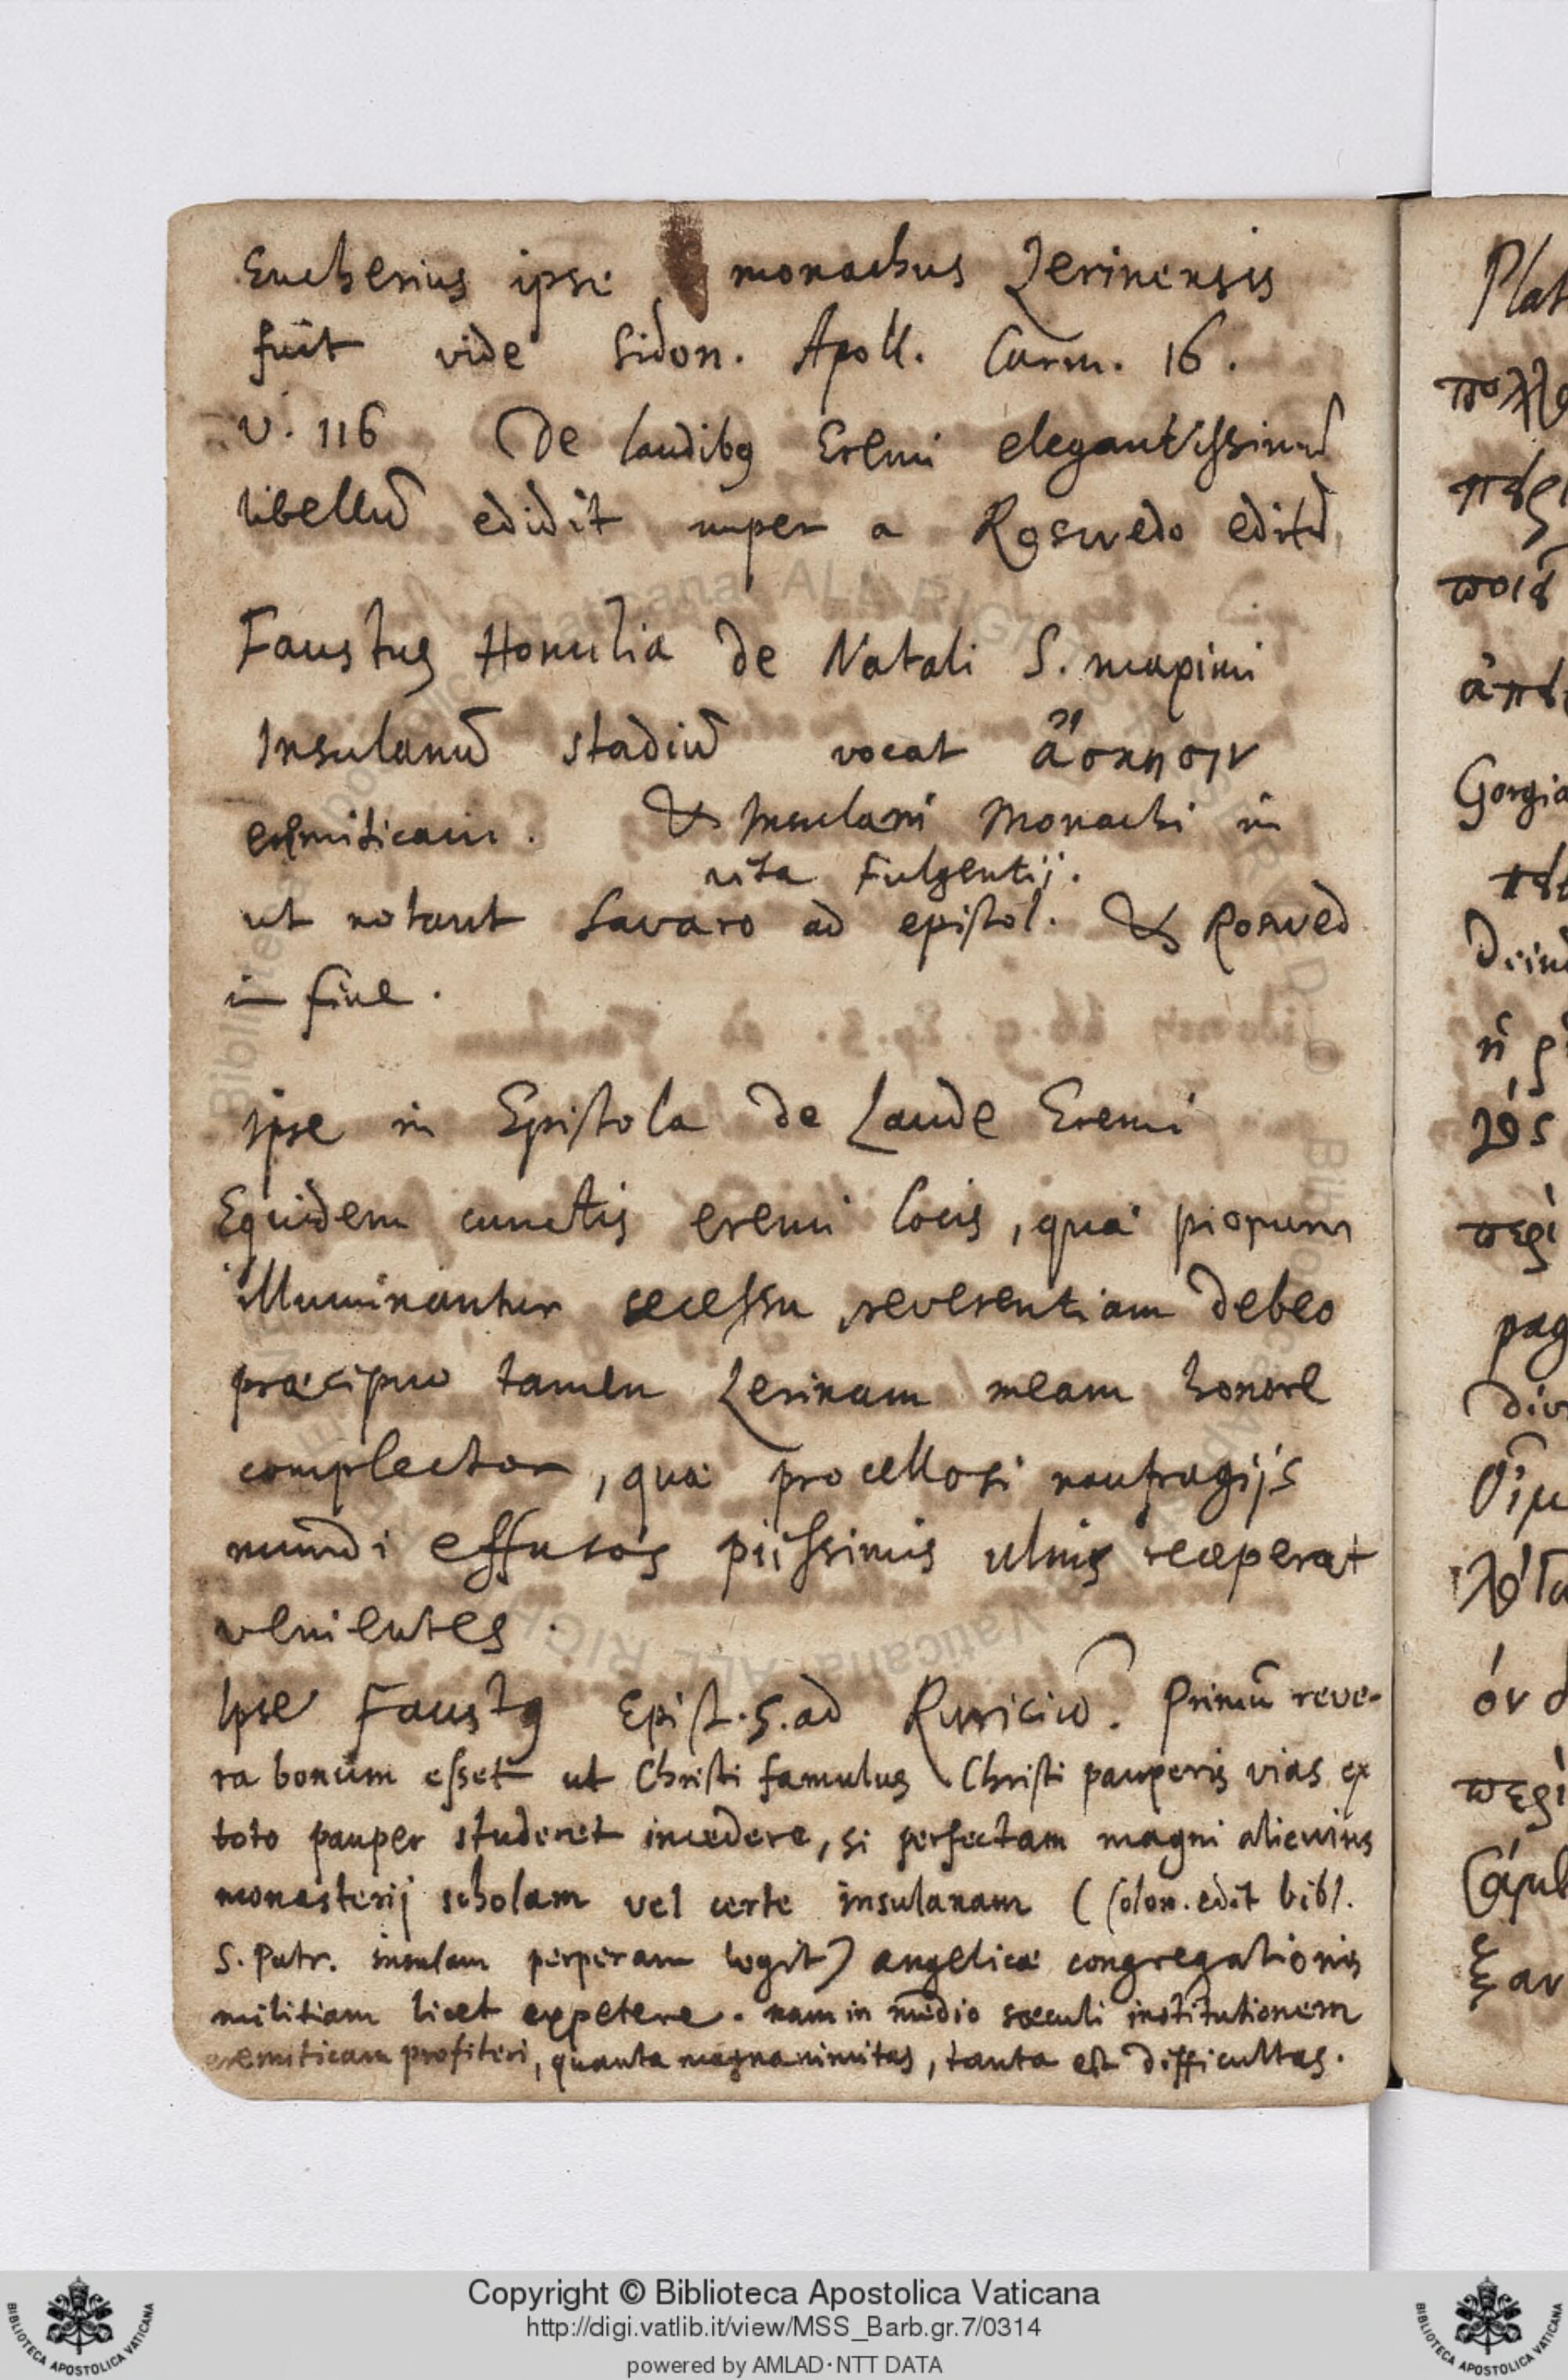 Eucherius ipse monachus Lerinensis
fuit vide Sidon. Apoll. Carm. 16.
v. 116 De laudibꝯ Eremi elegantissimū
libellū edidit nuper a Rosvvedo editū
Faustus Homilia de Natali S. maximi
Insulanū stadiū vocat ἄσκησιν
eremiticam. & Insulani Monachi in
vita Fulgentij.
ut notant Savaro ad epistol. & Rosvved
in fine.
ipse in Epistola de Laude Eremi
Equidem cunctis eremi locis, quæ piorum
illuminantur secessu reverentiam debeo
præcipuo tamen Lerinam meam honore
complector, quæ procellosi naufragijs
mundi effusos piissimis ulnis receperat
venientes.
Ipse Faustꝯ Epist. 5. ad Ruriciū. Primū reve-
ra bonum esset ut Christi famulus Christi pauperis vias ex
toto pauper studeret incedere, si perfectam magni alicuius
monasterij scholam vel certe insulanam (Colon. edit bibl.
S. Patr. insulam perperam legit) angelicæ congregationis
militiam licet expetere. nam in medio sæculi institutionem
eremiticam profiteri, quanta magnanimitas, tanta est difficultas.
Plat
πολλο
ποιȣ
Gorgia
περὶ
pag
div
ὸν
περὶ
ξαν
Copyright © Biblioteca Apostolica Vaticana
http://digi.vatlib.it/view/MSS_Barb.gr.7/0314
powered by AMLAD·NTT DATA
BIBLIOTECA APOSTOLICA VATICANA
BIBLIOTECA APOSTOLICA VATICANA